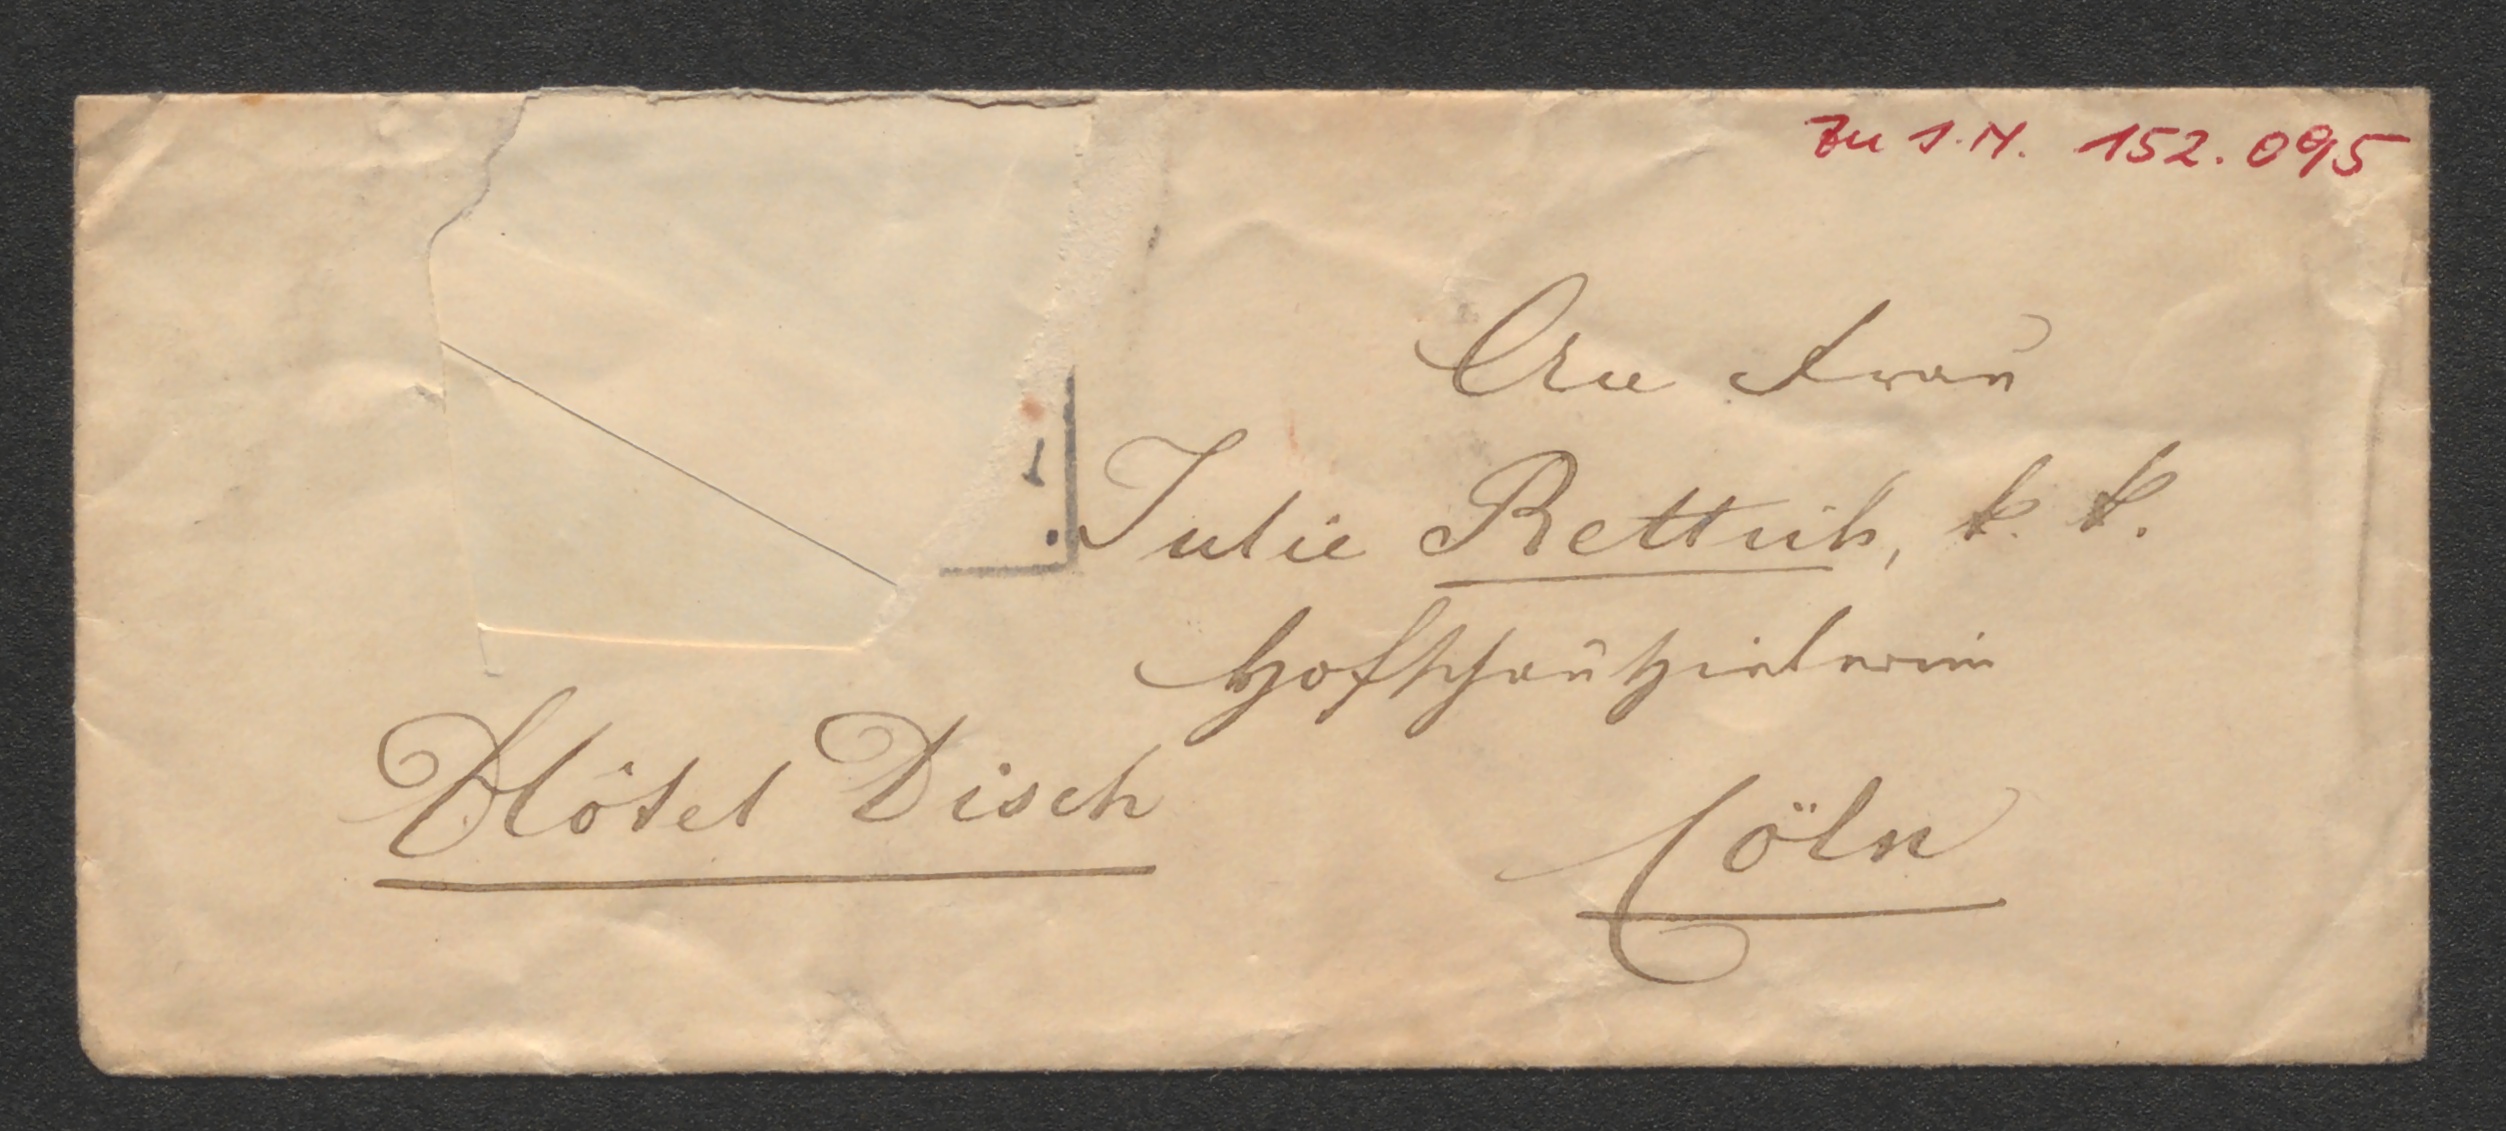 Zu I.N. 152.095
An Frau
Julie Rettich, k. k.
Hofschauspielerin
Hôtel Disch
Cöln